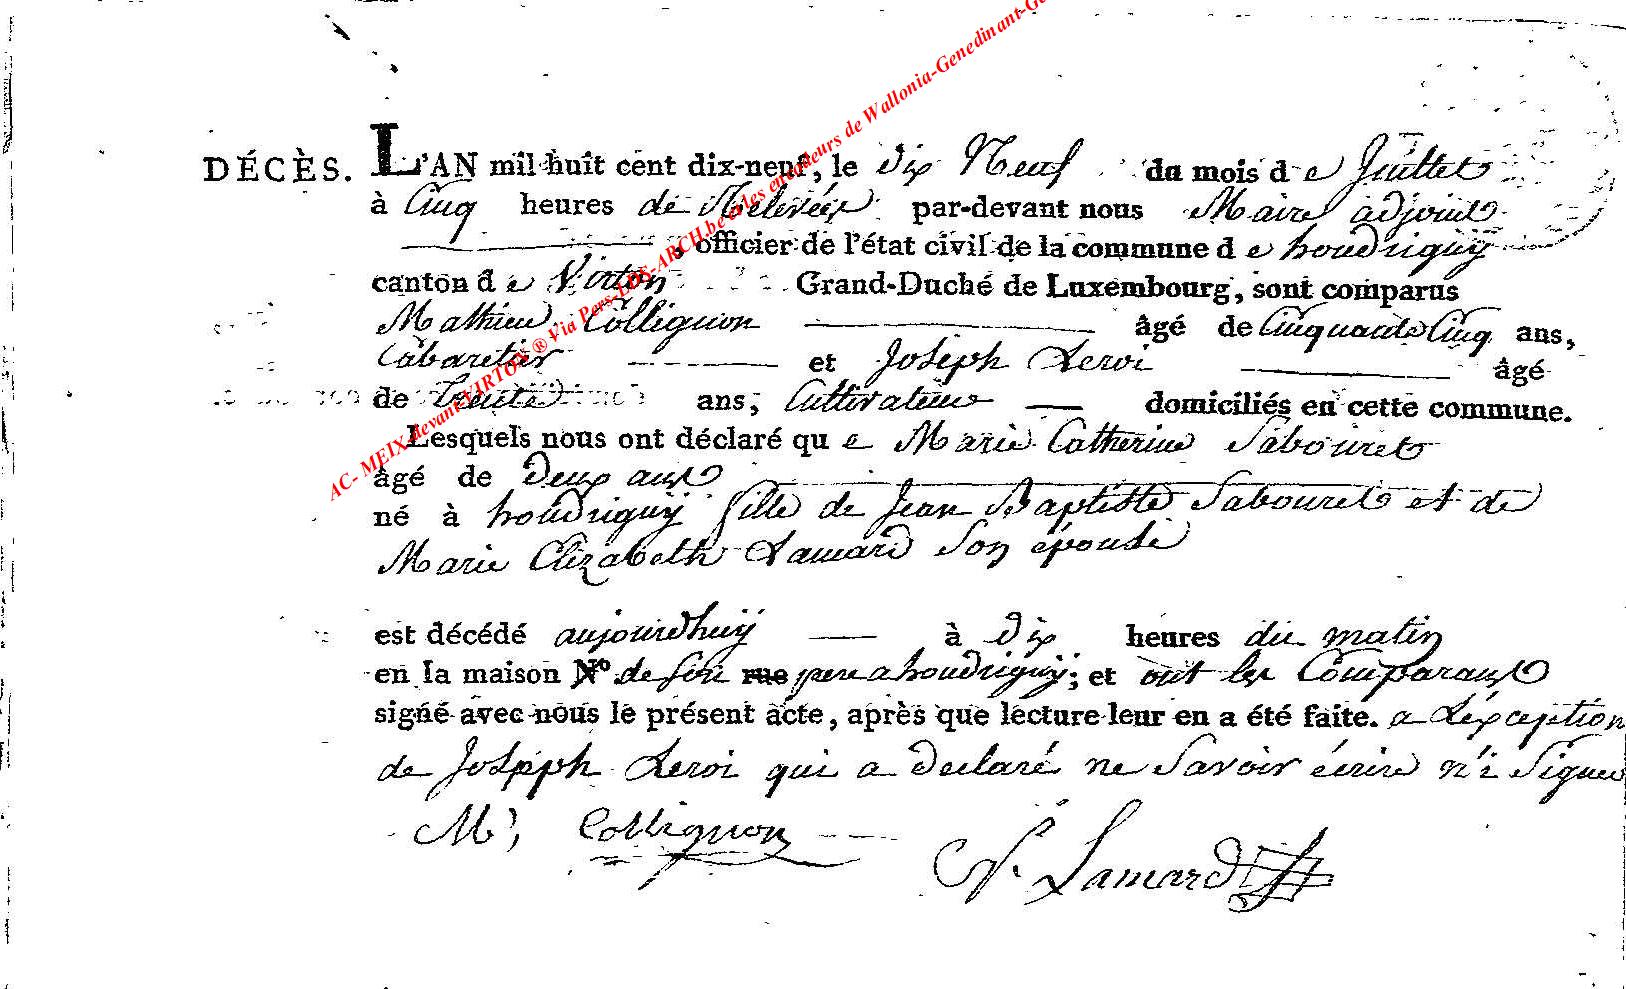 DÉCÈS. L'AN mil huit cent dix-neuf, le dix Neuf du mois de Juillet
à Cinq heures de Relevée par-devant nous Maire adjoint
, officier de l'état civil de la commune de houdrigny
canton de Virton Grand-Duché de Luxembourg, sont comparus
Mathieu Collignon âgé de Cinquante Cinq ans,
Cabaretier et Joseph Leroi âgé
de Trente ans, Cultivateur domiciliés en cette commune.
Lesquels nous ont déclaré que Marie Catherine Sabouret
âgé de deux ans
né à houdrigny fille de Jean Baptiste Sabouret et de
Marie Elizabeth Lamard Son épouse
est décédé aujourdhuy à dix heures du matin
en la maison No. de son rue pere a houdrigny; et ont les Comparans
signé avec nous le présent acte, après que lecture leur en a été faite. a Léxception
de Joseph Leroi qui a declaré ne Savoir écrire n'i Signer
M, Collignon
Lamard
AC- MEIX-devant-VIRTON ® Via Pers-LDS-ARCH.be et les encodeurs de Wallonia-Genedinant-Ge